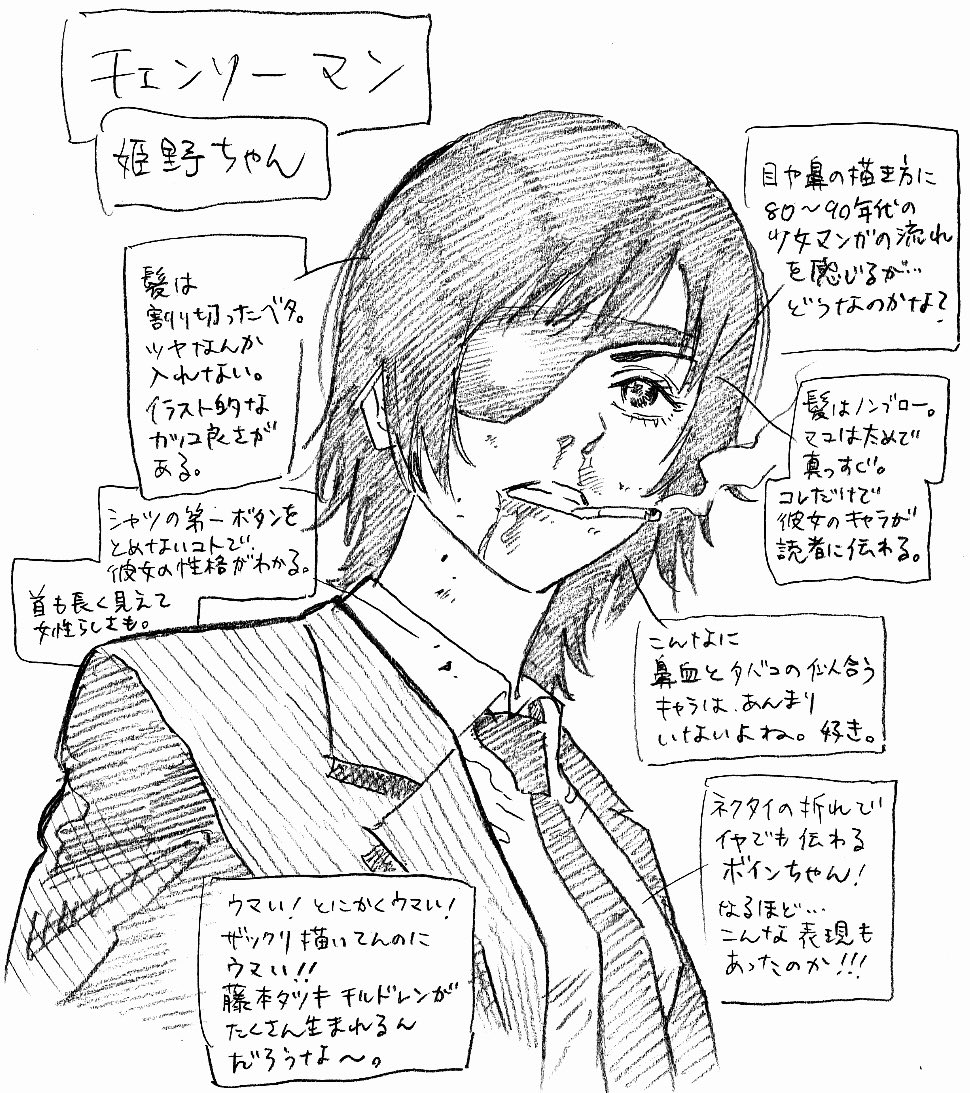 チェンソーマン
姫野ちゃん
髪は
割り切ったベタ。
ツヤなんか
入れない。
イラスト的な
カッコ良さが
ある。
シャツの第一ボタンを
とめないコトで…
彼女の性格がわかる。
首も長く見えて
女性らしさも。
目や鼻の描き方に
80～90年代の
少女マンガの流れ
を感じるが…
どうなのかな？
髪はノンブロー。
マユは太めで
真っすぐ。
コレだけで
彼女のキャラが
読者に伝わる。
こんなに
鼻血とタバコの似合う
キャラは、あんまり
いないよね。好き。
ネクタイの折れで
イヤでも伝わる
ボインちゃん！
なるほど…
こんな表現も
あったのか!!!
ウマい！とにかくウマい！
ザックリ描いてんのに
ウマい!!
藤本タツキチルドレンが
たくさん生まれるん
だろうな～。